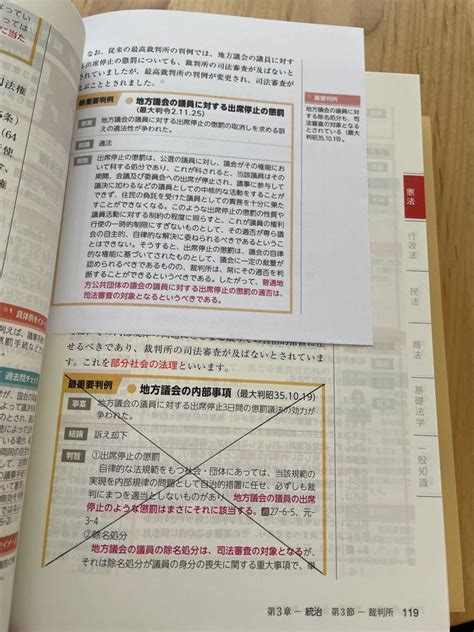 なお、従来の最高裁判所の判例では、地方議会の議員に対す
る出席停止の懲罰についても、裁判所の司法審査が及ばないと
されていましたが、最高裁判所の判例が変更され、司法審査が
及ぶこととされました。
最重要判例
地方議会の議員に対する出席停止の懲罰
(最大判令2.11.25)
事案 地方議会の議員に対する出席停止の懲罰の取消しを求める訴
えの適法性が争われた。
結論 適法
判旨 出席停止の懲罰は、公選の議員に対し、議会がその権能にお
いて科する処分であり、これが科されると、当該議員はその
期間、会議及び委員会への出席が停止され、議事に参与して
議決に加わるなどの議員としての中核的な活動をすることが
できず、住民の負託を受けた議員としての責務を十分に果た
すことができなくなる。このような出席停止の懲罰の性質や
議員活動に対する制約の程度に照らすと、これが議員の権利
行使の一時的制限にすぎないものとして、その適否が専ら議
会の自主的、自律的な解決に委ねられるべきであるというこ
とはできない。そうすると、出席停止の懲罰は、議会の自律
的な権能に基づいてされたものとして、議会に一定の裁量が
認められるべきであるものの、裁判所は、常にその適否を判
断することができるというべきである。したがって、普通地
方公共団体の議会の議員に対する出席停止の懲罰の適否は、
司法審査の対象となるというべきである。
重要判例
地方議会の議員に対
する除名処分も、司
法審査の対象となる
とされている(最大
判昭35.10.19)。
憲法
行政法
民法
商法
基礎法学
一般知識
せるべきであり、裁判所の司法審査が及ばないとされていま
す。これを部分社会の法理といいます。
最重要判例
地方議会の内部事項 (最大判昭35.10.19)
事案 地方議会の議員に対する出席停止3日間の懲罰議決の効力が
争われた。
結論 訴え却下
判旨 ①出席停止の懲罰
自律的な法規範をもつ社会・団体にあっては、当該規範の
実現を内部規律の問題として自治的措置に任せ、必ずしも裁
判にまつを適当としないものがあり、地方議会の議員の出席
停止のような懲罰はまさにそれに該当する。過27-6-5、元-
3-4
②除名処分
地方議会の議員の除名処分は、司法審査の対象となるが、
それは除名処分が議員の身分の喪失に関する重大事項で、単
第3章 ー 統治 第3節 ー 裁判所 119